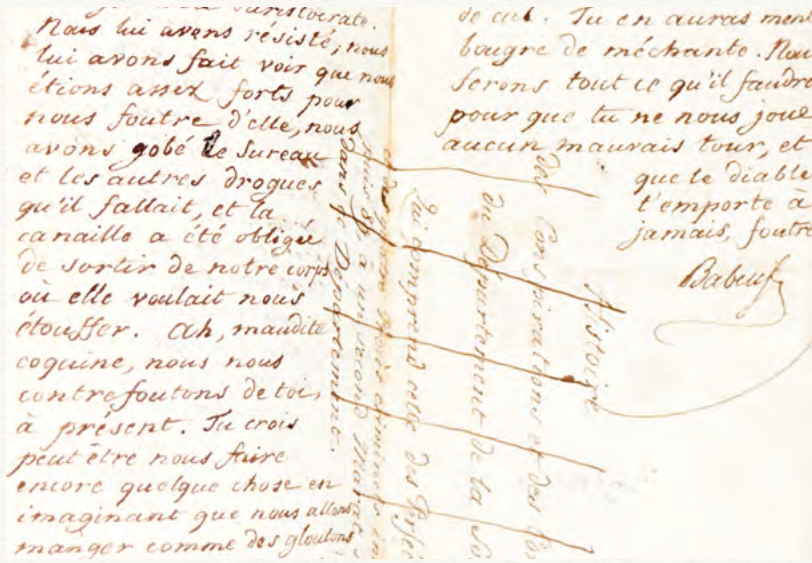 aristocrate.
Nous lui avons résisté, nous
lui avons fait voir que nous
étions assez forts pour
nous foutre d'elle, nous
avons gobé le Sureau
et les autres drogues
qu'il fallait, et la
canaille a été obligée
de sortir de notre corps
où elle voulait nous
étouffer. Ah, maudite
coquine, nous nous
contrefoutons de toi,
à présent. Tu crois
peut être nous faire
encore quelque chose en
imaginant que nous allons
manger comme des gloutons
de cul. Tu en auras men
bougre de méchante. Nou
ferons tout ce qu'il faudra
pour que tu ne nous joue
aucun mauvais tour, et
que le diable
t'emporte à
jamais, foutre
Babeuf
Histoire
des Conspirations et des
du Département de la So
Qui comprend celle des
à un second Marat
dans ce Département.